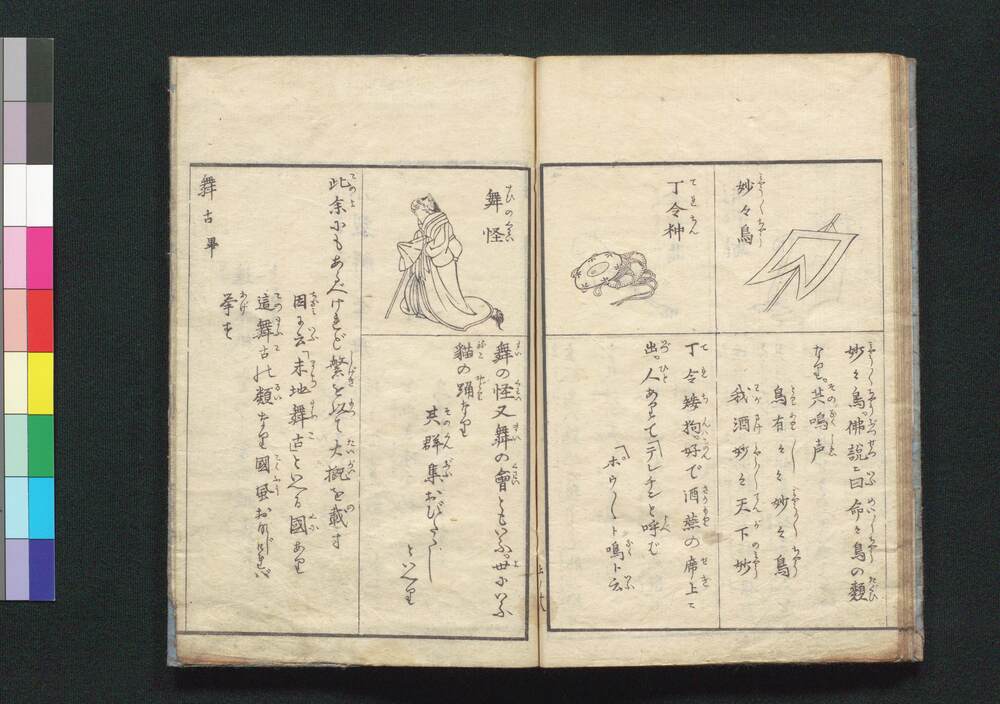 妙々鳥
妙々鳥。佛説ニ曰命々鳥の類
なり。其鳴声
鳥有々々妙々鳥
我酒妙々天下妙
丁令神
丁令矮狗。好で酒燕の席上ニ
出。人ありて「テレチンと呼む
「ホウ〳〵ト鳴ト云
舞怪
舞の怪又舞の會ともいふ。世にいふ
貓の踊なり
其群集おびたゝし
といへり
此余にもあるべけれど繁を以て大概を載す
因に云「末地舞古といへる國あり
這舞古の類なり國風おなじければ
挙ず
舞古畢